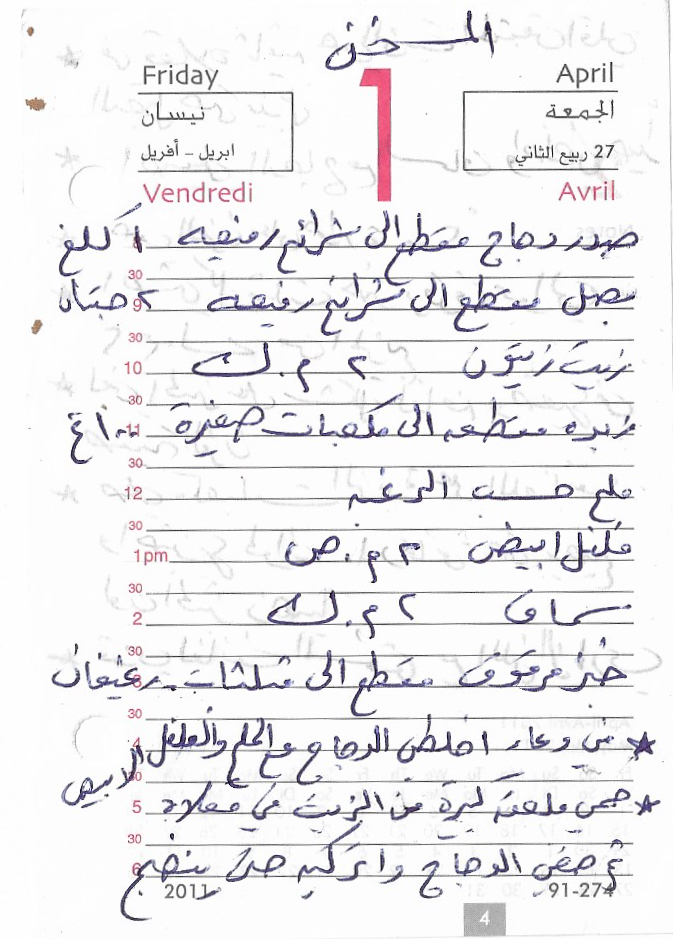 المسخن
Friday April
نيسان الجمعة
ابريل - أفريل 27 ربيع الثاني
1
Vendredi Avril
صدر دجاج مقطع الى شرائح رفيعه ١ كلغ
8
30
بصل مقطع الى شرائح رفيعه ٢ حبتان
9
30
زيت زيتون ٢ م.ك
10
30
زبده مقطعه الى مكعبات صغيرة ١٠٠ غ
11
30
ملح حسب الرغبه
12
30
فلفل ابيض ٢ م.ص
1pm
30
سماق ٢ م.ك
2
30
خبز مرقوق مقطع الى مثلثات رغيفان
3
30
★ في وعاء اخلطي الدجاج مع الملح والفلفل الابيض
4
30
★ حمي ملعقه كبيرة من الزيت في مقلاة
5
30
ثم ضعي الدجاج واتركيه حتى ينضج
6
2011 91-274
4